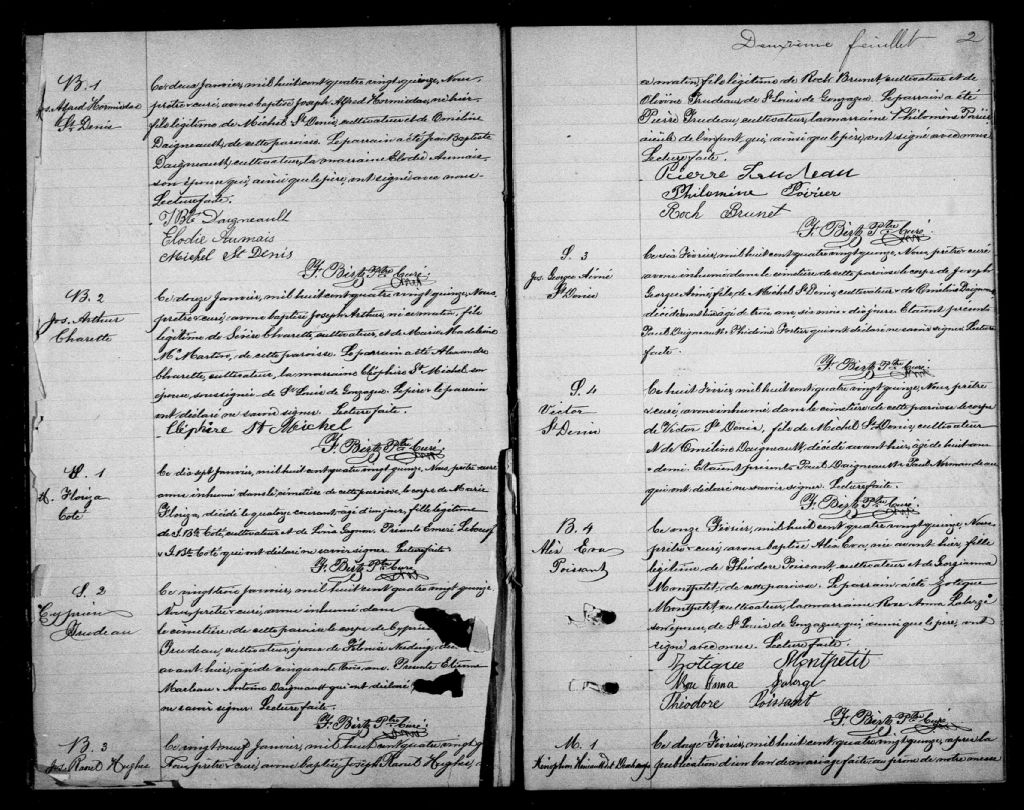 B. 1
Jos. Alfred Hormisdas
St. Denis
Ce deux Janvier, mil huit cent quatre vingt quinze, Nous
prêtre & curé, avons baptisé Joseph Alfred Hormisdas, né hier
fils légitime de Michel St Denis, cultivateur, et de Cornélie
Daigneault, de cette paroisse. Le parrain a été Jean Baptiste
Daigneault, cultivateur, la marraine Elodie Aumais
son épouse qui, ainsi que le père, ont signé avec nous.
Lecture faite.
J Bte Daigneault
Elodie Aumais
Michel St Denis
F. Birtz Ptre Curé
B. 2
Jos. Arthur
Charette
Ce douze Janvier, mil huit cent quatre vingt quinze, Nous
prêtre & curé, avons baptisé Joseph Arthur, né ce matin, fils
légitime de Charette, cultivateur, et de Marie Madeleine
de cette paroisse. Le parrain a été Alexandre
Charette, cultivateur, la marraine Cléphire St Michel son
épouse, soussignée de St Louis de Gonzague. Le père & le parrain
ont déclaré ne savoir signer. Lecture faite.
Cléphire St Michel
F. Birtz Ptre Curé
S. 1
M. Floriza
Coté
Ce dix sept Janvier, mil huit cent quatre vingt quinze, Nous prêtre curé
avons inhumé dans le cimetière de cette paroisse, le corps de Marie
Floriza, décédé le quatorze courant, âgé d'un jour, fille légitime
de J. Bte Coté, cultivateur et de Gagnon. Présents Lebœuf
& J. Bte Coté qui ont déclaré ne savoir signer. Lecture faite.
F. Birtz Ptre Curé
S. 2
Cyprien
Trudeau
Ce vingt trois Janvier, mil huit cent quatre vingt quinze,
Nous prêtre & curé, avons inhumé dans
le cimetière de cette paroisse le corps de Cyprien
Trudeau, cultivateur, époux de décédé
avant hier, âgé de cinquante trois ans. Présents Etienne
Marleau & Antoine Daigneault qui ont déclaré
ne savoir signer. Lecture faite.
F. Birtz Ptre Curé
B. 3
Jos. Raoul Hughes
Ce vingt neuf Janvier, mil huit cent quatre vingt
Nous prêtre & curé, avons baptisé Joseph Raoul Hughes,
Deuxième feuillet 2
ce matin, fils légitime de Roch Brunet, cultivateur et de
Trudeau, de St Louis de Gonzague. Le parrain a été
Pierre Trudeau, cultivateur, la marraine Philomène
aïeule de l'enfant, qui, ainsi que le père, ont signé avec nous
Lecture faite.
Pierre Trudeau
Philomine Poirier
Roch Brunet
F. Birtz Ptre Curé
S. 3
Jos. Georges Aimé
St Denis
Ce six Février, mil huit cent quatre vingt quinze, Nous prêtre & curé
avons inhumé dans le cimetière de cette paroisse le corps de Joseph
Georges Aimé, fils de Michel St Denis, cultivateur & de Cornélie Daigneault
décédé âgé de trois ans, six mois & dix jours. Etaient présents
Paul Daigneault & Fortier qui ont déclaré ne savoir signer. Lecture
faite.
F. Birtz Ptre Curé
S. 4
Victor
St Denis
Ce huit Février, mil huit cent quatre vingt quinze, Nous prêtre
& curé, avons inhumé dans le cimetière de cette paroisse le corps
de Victor St Denis, fils de Michel St Denis, cultivateur
& de Cornélie Daigneault, décédé avant hier, âgé de huit ans
& demi. Etaient présents Paul Daigneault & Paul Normandeau
qui ont déclaré ne savoir signer. Lecture faite.
F. Birtz Ptre Curé
B. 4
Alex Eva
Poissant
Ce onze Février, mil huit cent quatre vingt quinze, Nous
prêtre & curé, avons baptisé Alex Eva, née avant hier, fille
légitime de Théodore Poissant, cultivateur et de Georgianna
Montpetit, de cette paroisse. Le parrain a été Zotique
Montpetit, cultivateur, la marraine Rose Anna Laberge
son épouse, de St Louis de Gonzague, qui, ainsi que le père, ont
signé avec nous. Lecture faite.
Zotique Montpetit
Anna Laberge
Théodore Poissant
F. Birtz Ptre Curé
M. 1
Ce douze Février, mil huit cent quatre vingt quinze, après la
publication d'un ban de mariage faite au prône de notre messe